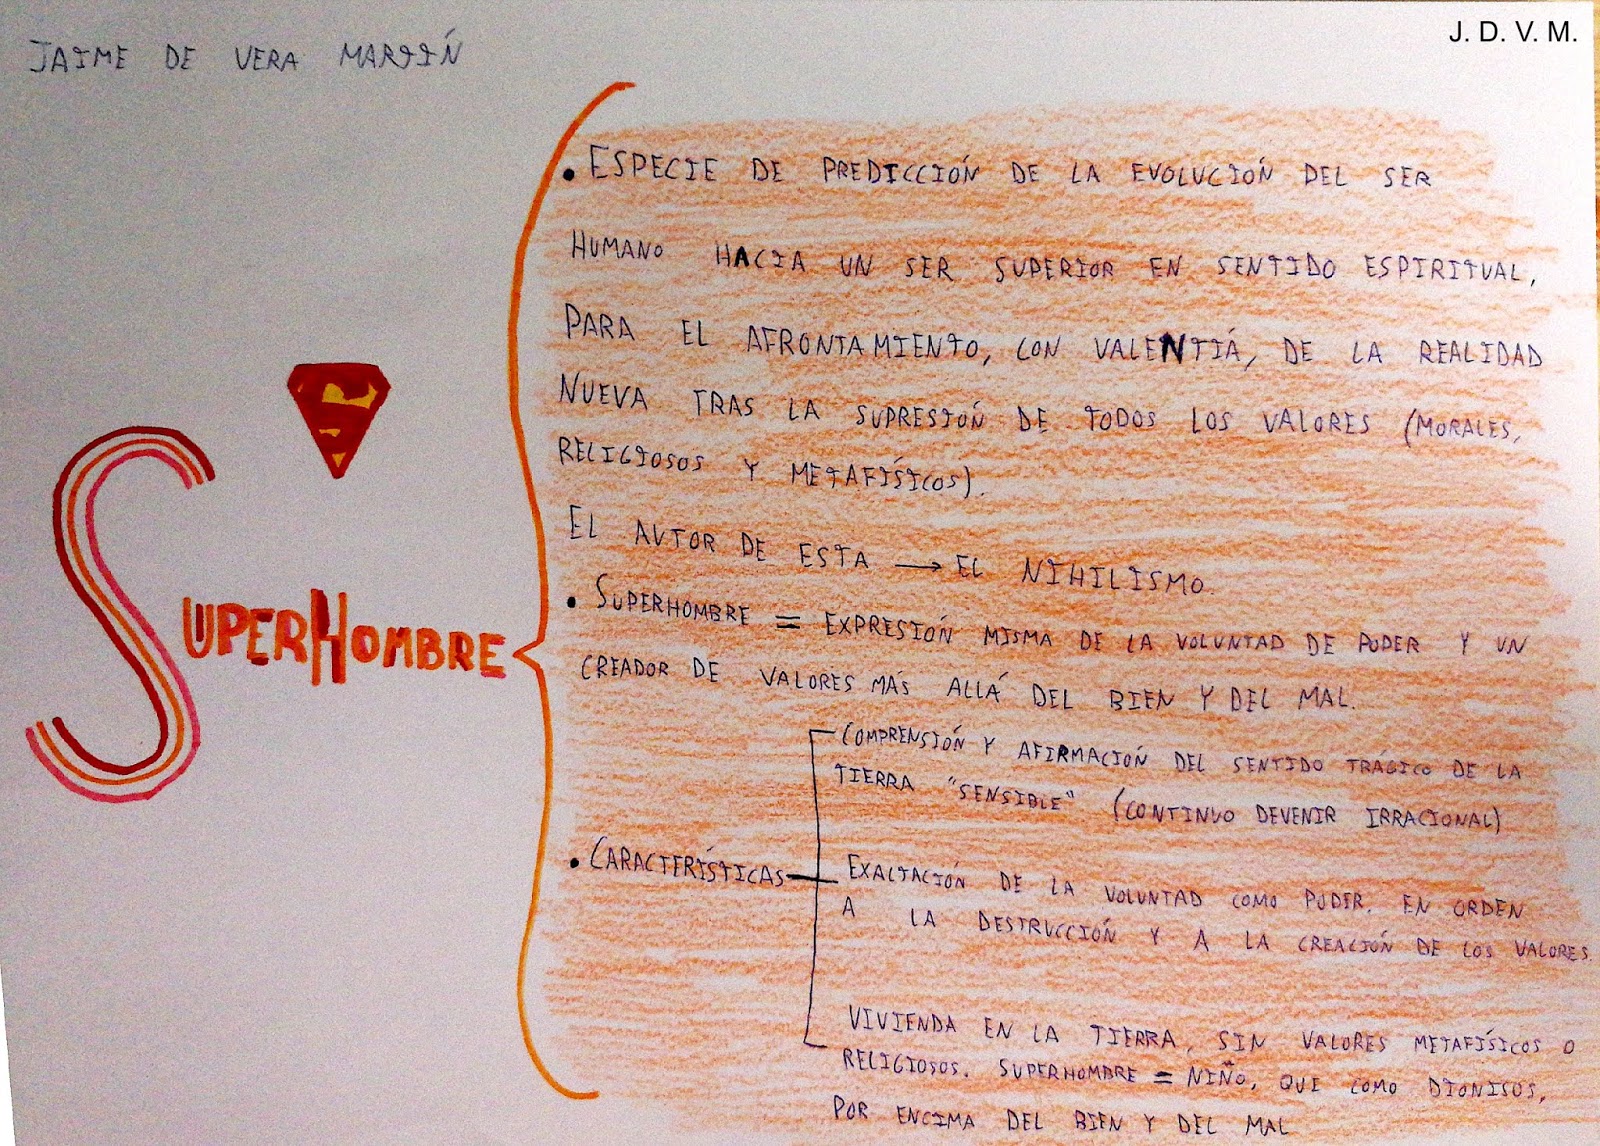 J. D. V. M.
JAIME DE VERA MARTÍN
SUPERHOMBRE
• ESPECIE DE PREDICCIÓN DE LA EVOLUCIÓN DEL SER
HUMANO HACIA UN SER SUPERIOR EN SENTIDO ESPIRITUAL,
PARA EL AFRONTAMIENTO, CON VALENTIÁ, DE LA REALIDAD
NUEVA TRAS LA SUPRESIÓN DE TODOS LOS VALORES (MORALES,
RELIGIOSOS Y METAFÍSICOS).
EL AUTOR DE ESTA → EL NIHILISMO.
• SUPERHOMBRE = EXPRESIÓN MISMA DE LA VOLUNTAD DE PODER Y UN
CREADOR DE VALORES MÁS ALLÁ DEL BIEN Y DEL MAL.
• CARACTERÍSTICAS
COMPRENSIÓN Y AFIRMACIÓN DEL SENTIDO TRÁGICO DE LA
TIERRA "SENSIBLE" (CONTINUO DEVENIR IRRACIONAL)
EXALTACIÓN DE LA VOLUNTAD COMO PODER, EN ORDEN
A LA DESTRUCCIÓN Y A LA CREACIÓN DE LOS VALORES.
VIVIENDA EN LA TIERRA, SIN VALORES METAFÍSICOS O
RELIGIOSOS. SUPERHOMBRE = NIÑO, QUE COMO DIONISOS,
POR ENCIMA DEL BIEN Y DEL MAL